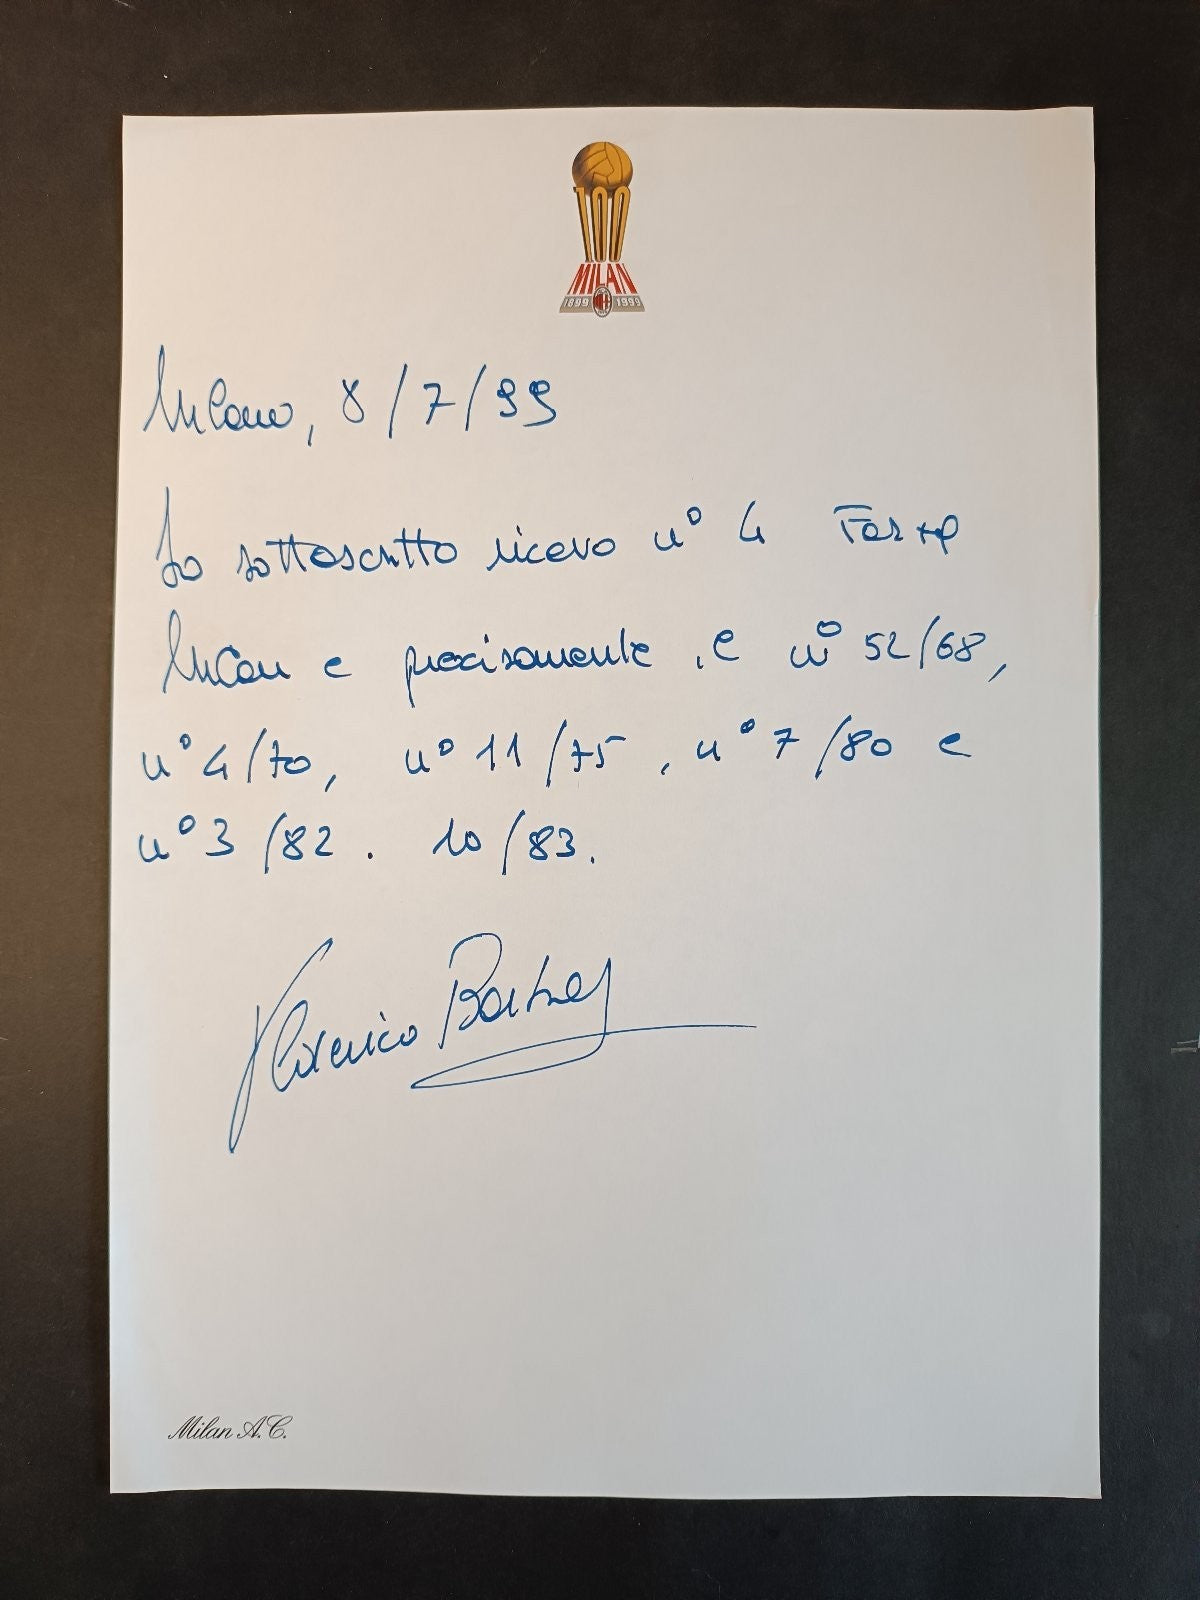 100
MILAN
1899 1999
Milano, 8/7/99
Io sottoscritto ricevo n° 4 Forza
Milan e precisamente il n° 52/68,
n° 4/70, n° 11/75, n° 7/80 e
n° 3/82. 10/83.
Milan A.C.